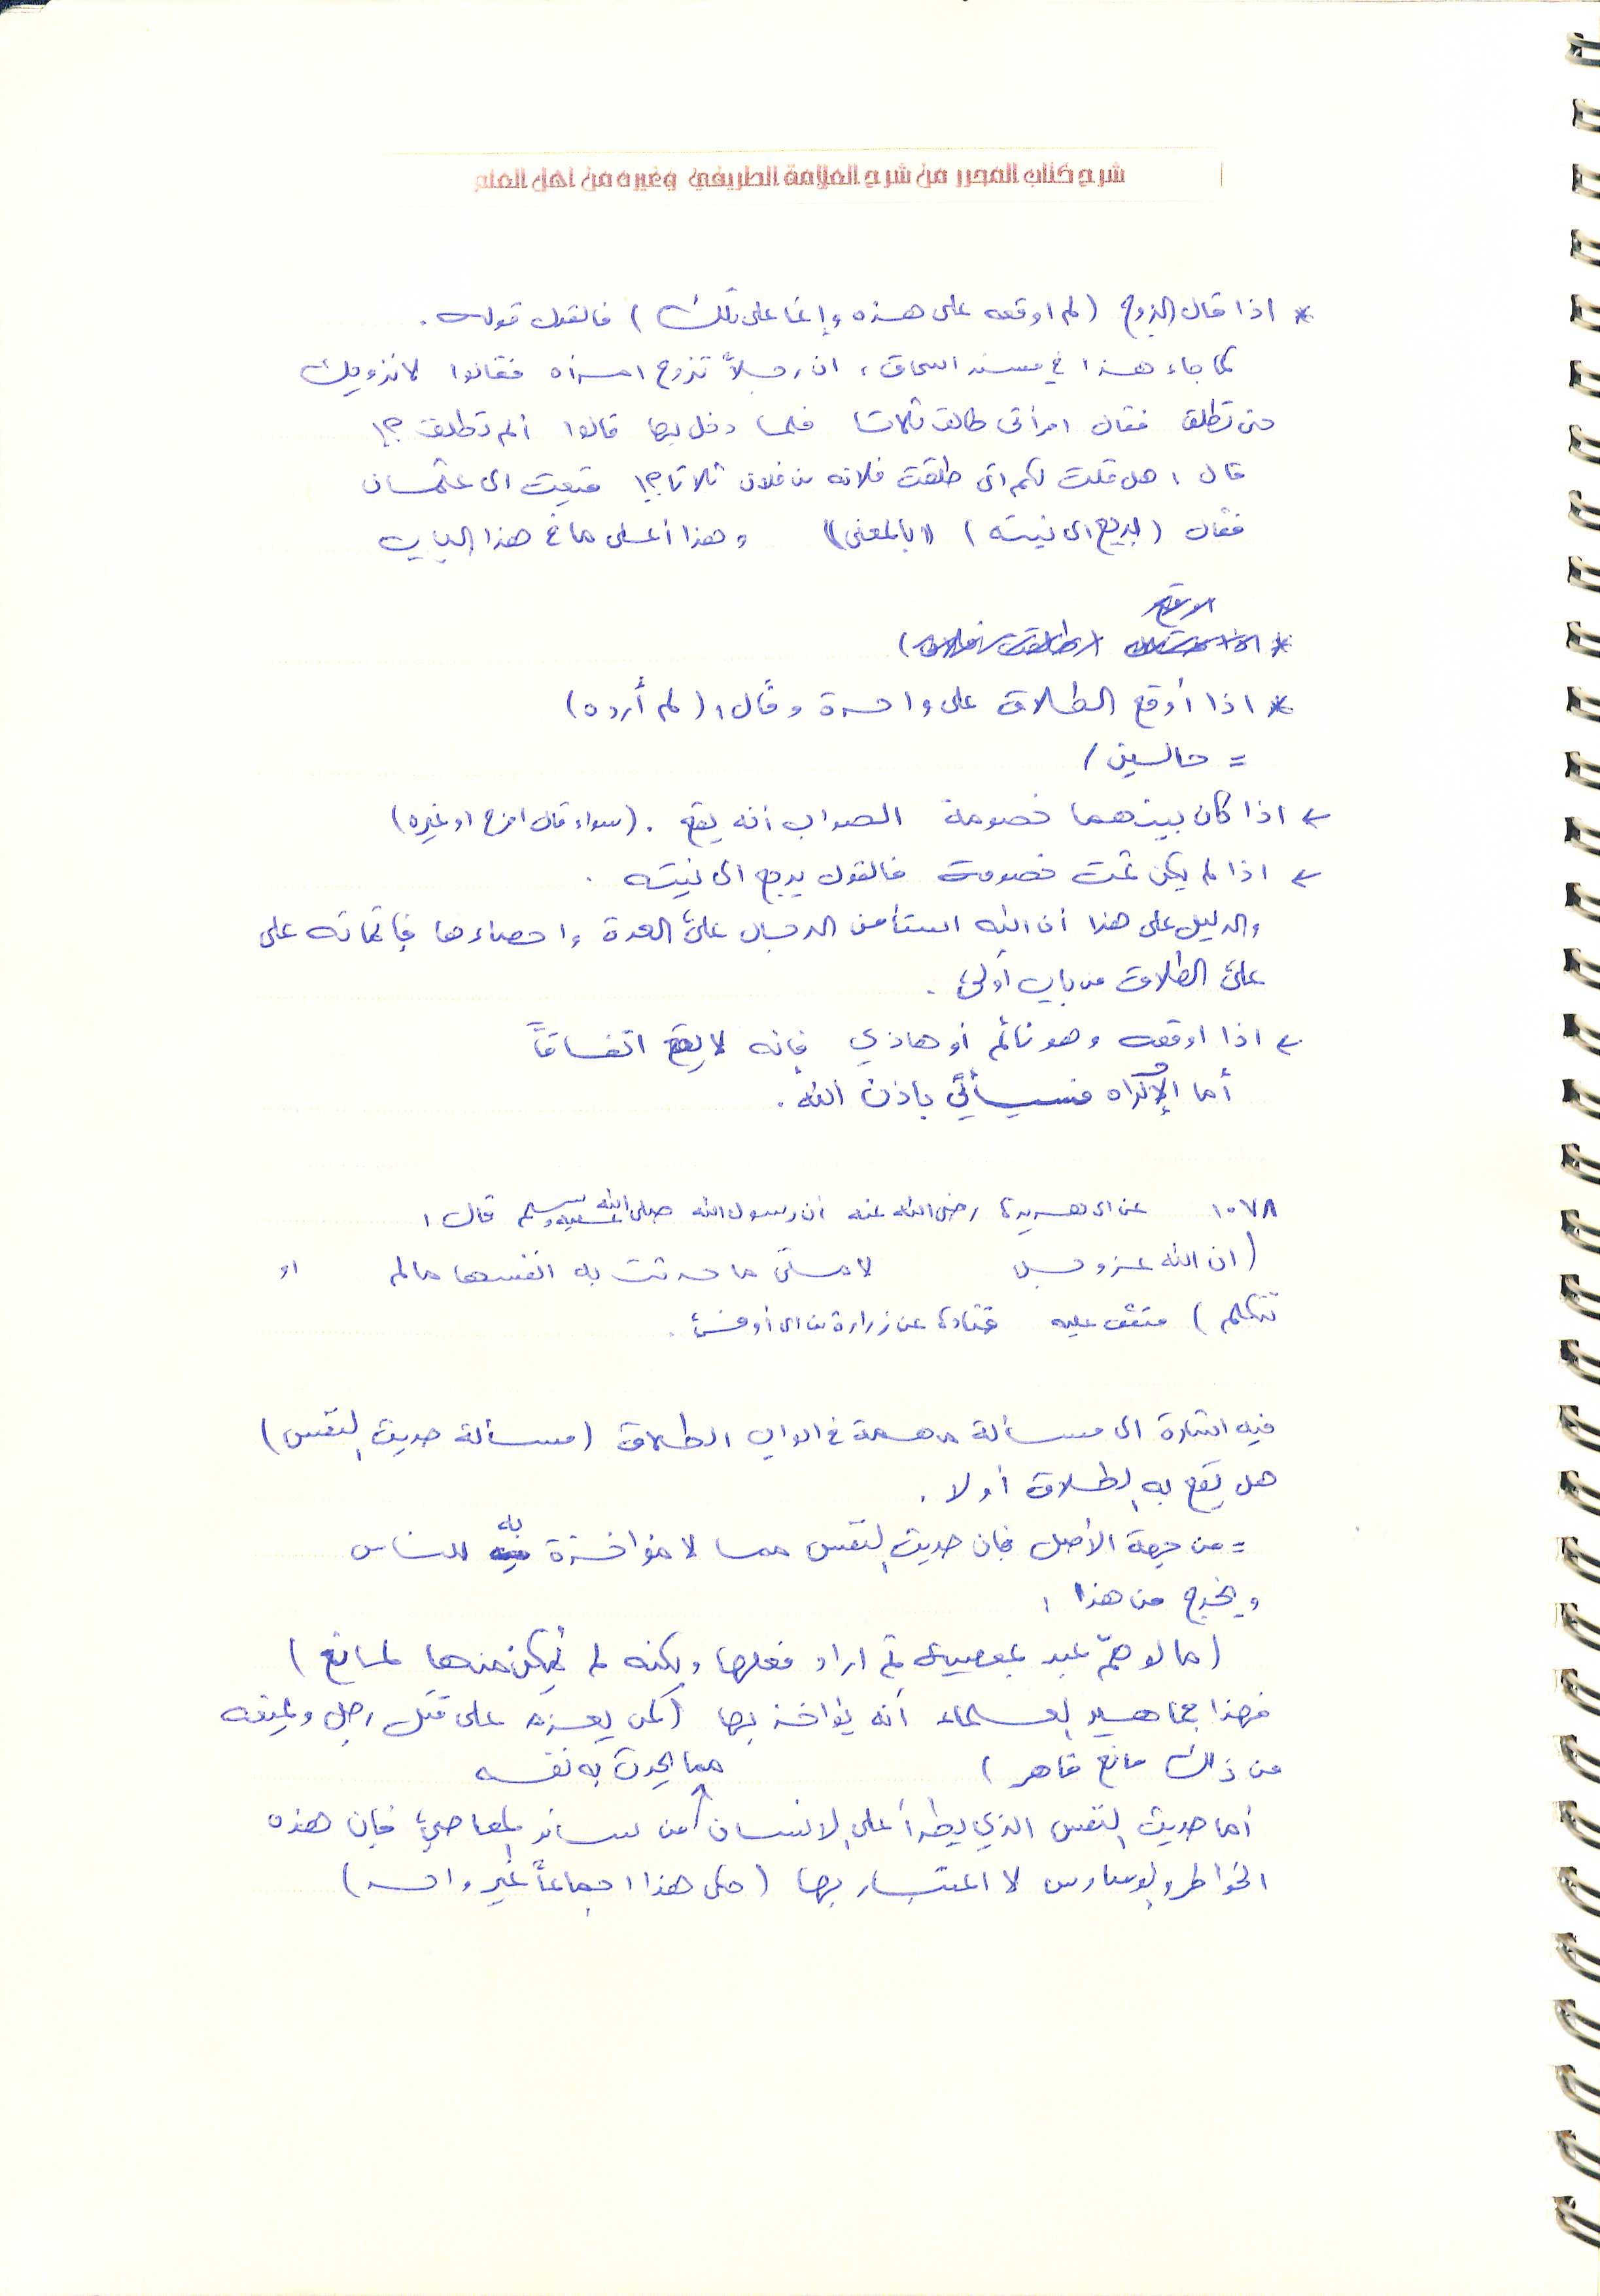 شرح كتاب المحرر من شرح العلامة الطريفي وغيره من اهل العلم
* اذا قال الزوج (لم اوقعه على هذه وإنما على تلك) فالقول قوله .
كما جاء هذا في مسند اسحاق ، ان رجلاً تزوج امرأة فقالوا لا نزوجك
حتى تطلق فقال امرأتي طالق ثلاثا فلما دخل بها قالوا ألم تطلق ؟!
قال : هل قلت لكم اني طلقت فلانه بن فلان ثلاثا ؟! فبعث الى عثمان
فقال (يرجع الى نيته) "بالمعنى" وهذا أعلى ما في هذا الباب
* اذا أوقع الطلاق على واحدة وقال : (لم أرده)
= حالتين /
← اذا كان بينهما خصومة الصواب أنه يقع . (سواء قال امزح او غيره)
← اذا لم يكن ثمت خصومة فالقول يرجع الى نيته .
والدليل على هذا أن الله استأمن الرجال على العدة واحصاءها فإتمانه على
على الطلاق من باب أولى .
← اذا اوقعه وهو نائم أو هاذي فإنه لا يقع اتفاقاً
أما الإكراه فسيأتي باذن الله .
١٠٧٨ عن ابي هريرة رضي الله عنه أن رسول الله صلى الله عليه وسلم قال :
(ان الله عز وجل لامتي ما حدثت به انفسها مالم او
تتكلم) متفق عليه قتادة عن زرارة بن ابي أوفى .
فيه اشارة الى مسألة مهمة في ابواب الطلاق (مسألة حديث النفس)
هل يقع به الطلاق أو لا .
= من جهة الأصل فإن حديث النفس مما لا مؤاخذة به للناس
ويخرج من هذا :
(ما لو همّ عبد بمعصية ثم اراد فعلها ولكنه لم يُمكن منها لمانع)
فهذا جماهير العلماء أنه يؤاخذ بها (كمن يعزم على قتل رجل ويمنعه
من ذلك مانع قاهر)
أما حديث النفس الذي يطرأ على الانسان مما يحدث به نفسه من سائر المعاصي فإن هذه
الخواطر والوساوس لا اعتبار بها (حكى هذا اجماعاً غير واحد)